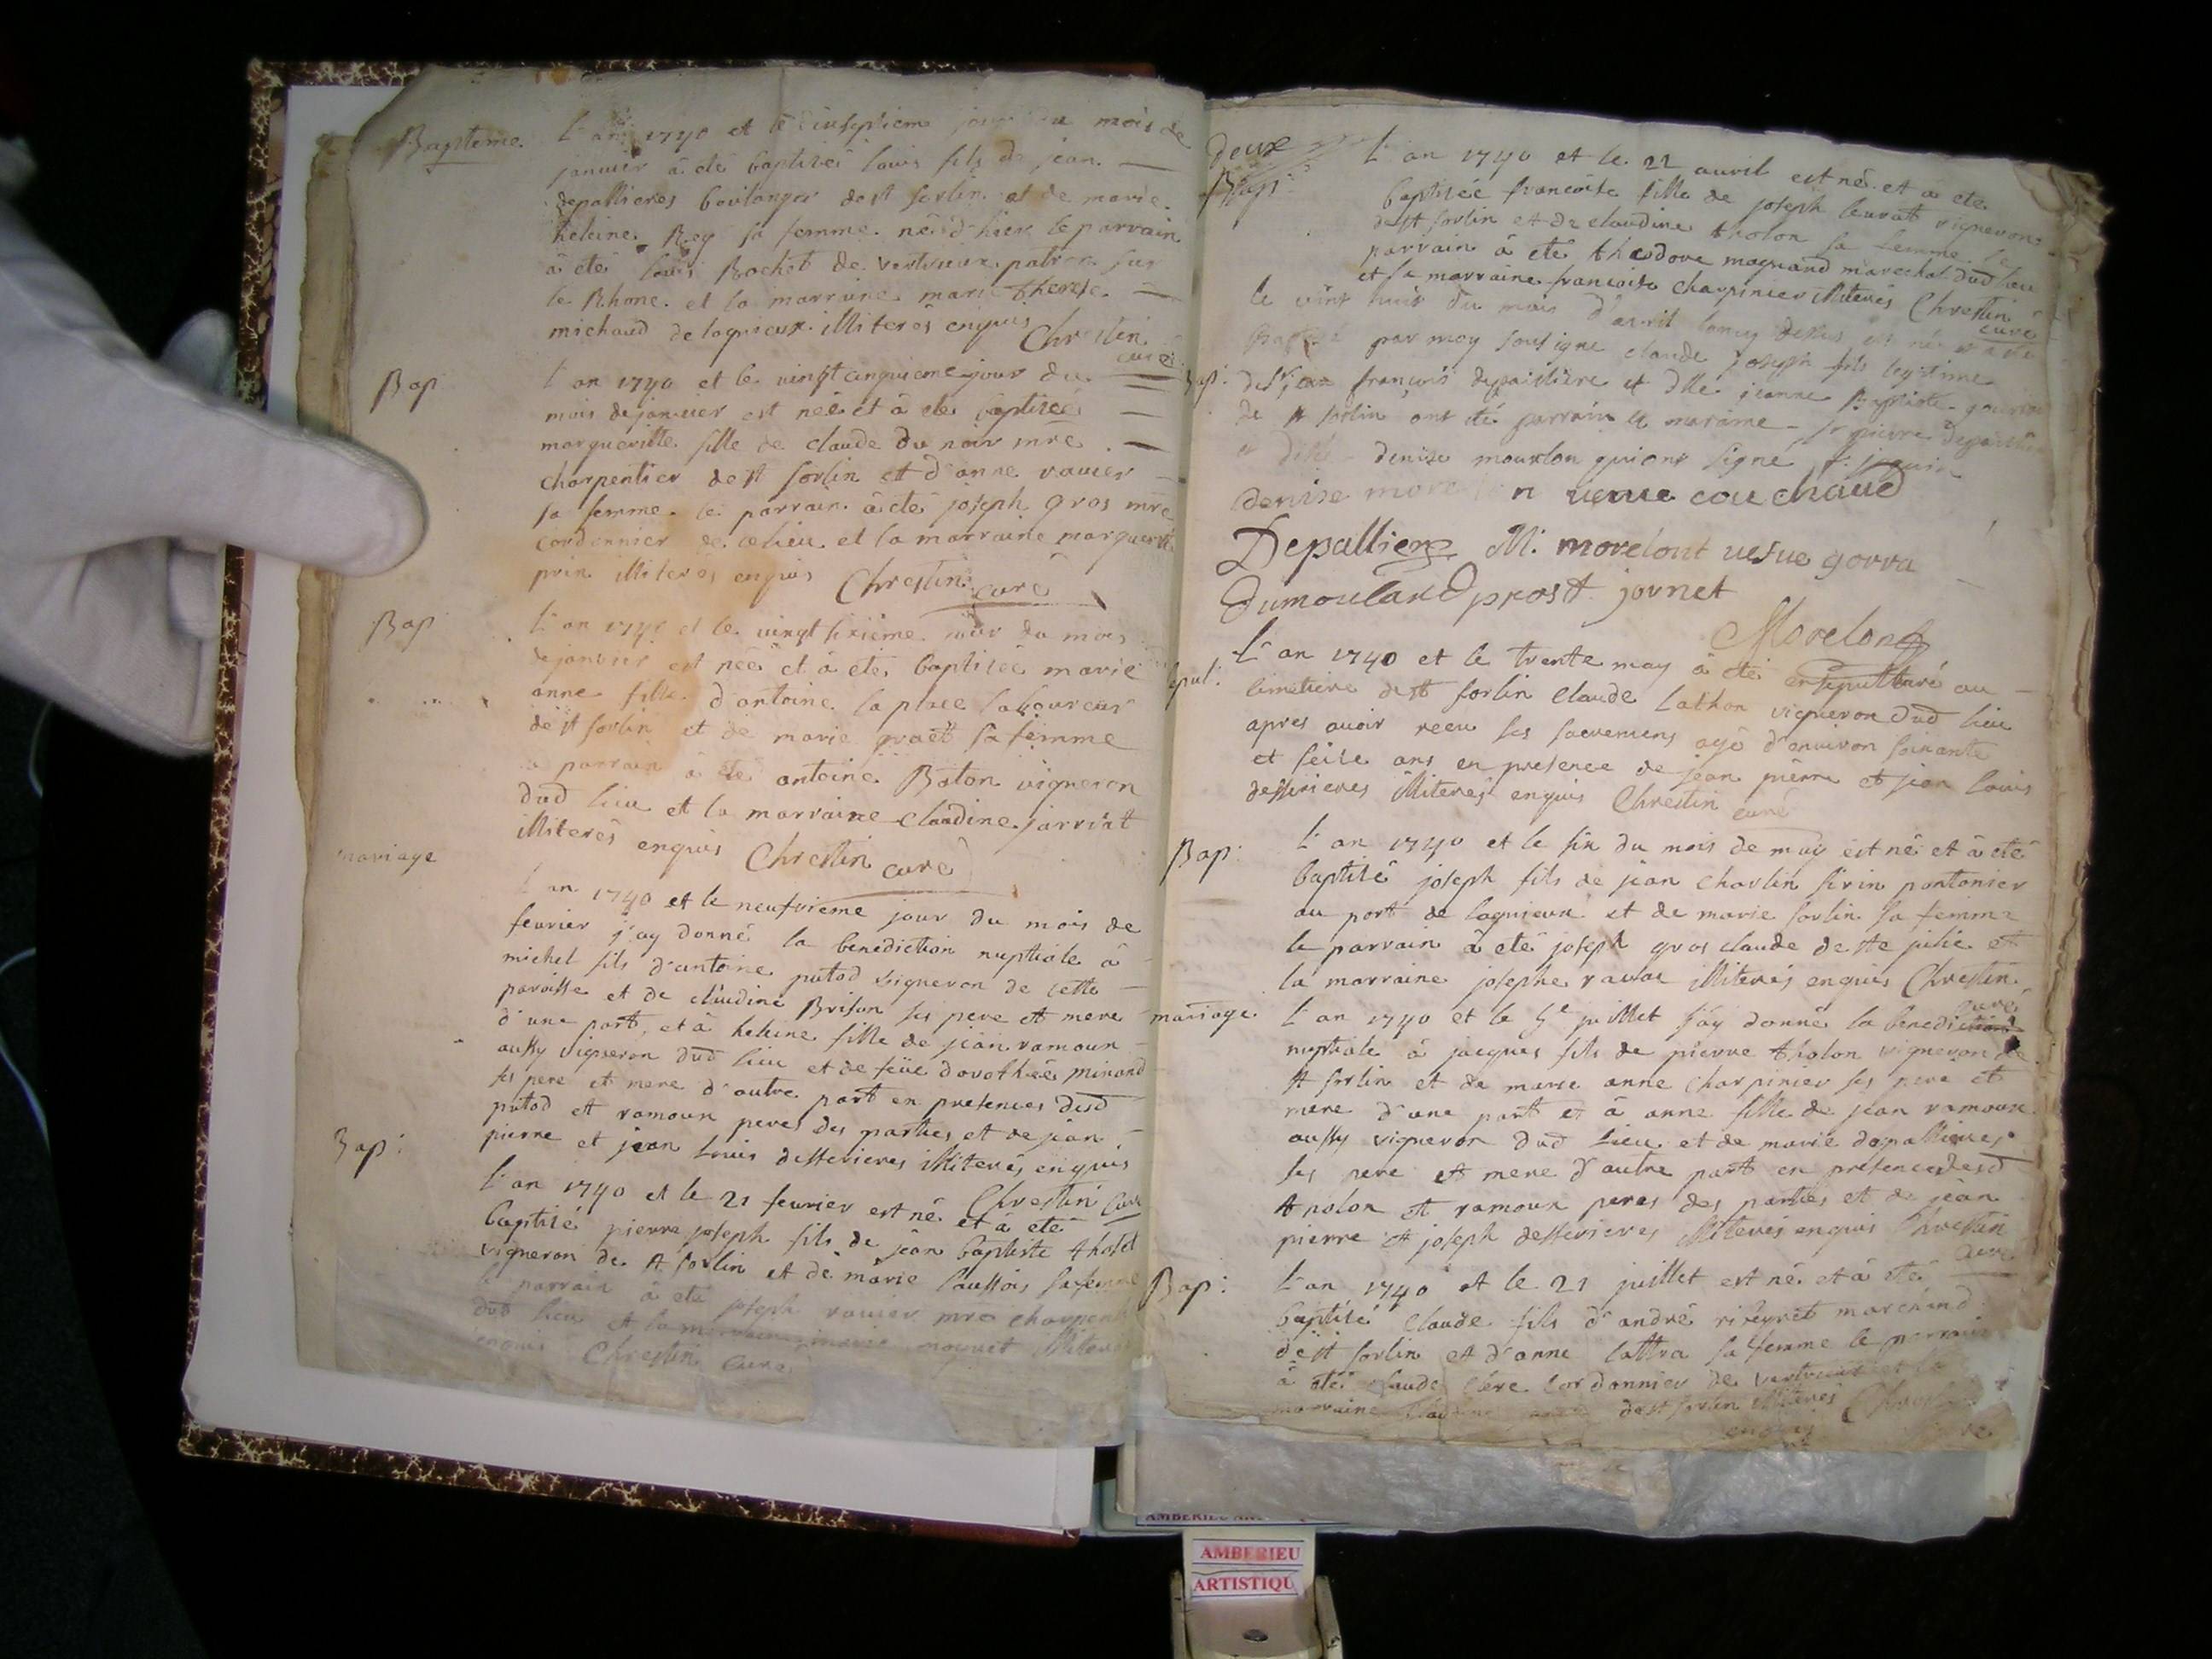 Baptême.
L'an 1740 et le diuseptiem jour du mois de
janvier à été baptisé louis fils de jean
depallieres boulanger de st sorlin et de marie
heleine Rey sa femme né d'hier le parrain
à été louis Rochet de vertrieux patron sur
le Rhone et la marraine marie therese
michaud de lagnieux illiterés enquis Chrestin
curé
Bap
L'an 1740 et le vingt cinquieme jour du
mois de janvier est née et à été baptisée
margueritte fille de claude du noir mre
charpentier de st sorlin et d'anne ravier
sa femme le parrain à été joseph gros mre
cordonnier de ce lieu et la marraine marguerite
prin illiterés enquis Chrestin curé
Bap
L'an 1740 et le vingt sixième jour du mois
de janvier est née et à été baptisée marie
anne fille d'antoine la place laboureur
de st sorlin et de marie sa femme
le parrain à été antoine Baton vigneron
dud lieu et la marraine claudine jarriat
illiterés enquis Chrestin curé
mariage
L'an 1740 et le neufvieme jour du mois de
fevrier j'ay donné la benediction nuptiale à
michel fils d'antoine putod vigneron de cette
paroisse et de claudine Brison ses pere et mere
d'une part, et à heleine fille de jean ramoux
aussy vigneron dud lieu et de feüe dorothée minand
ses pere et mere d'autre part en presences desd
putod et ramoux peres des parties et de jean
pierre et jean louis desserieres illiterés enquis
Chrestin curé
Bap:
L'an 1740 et le 21 fevrier est né et à été
baptisé pierre joseph fils de jean baptiste tholon
vigneron de st sorlin et de marie saussois sa femme
le parrain à été joseph ravier mre charpentier
dud lieu et la marraine marie illiterés
enquis Chrestin curé
deux
Bap:
L'an 1740 et le 22 avril est né et a été
baptisée francoise fille de joseph levrat vigneron
de st sorlin et de claudine tholon sa femme le
parrain à été theodore magnand marechal dud lieu
et la marraine francoise charpinier illiterés Chrestin
curé
le vint huit du mois d'avril lan cy desus est né et a été
Bap:
baptisé par moy sousigne claude joseph fils legitime
de Sr jean françois depaillière et dlle jeanne Baptiste gourra
de st sorlin ont été parrain et maraine Sr pierre depaillière
et dlle denise mourlon qui ont signé
denise morelon veuve couchaud
Depalliere M. morelont vefue gorra
Dumoulard prost jornet
Morelon
sepul:
L'an 1740 et le trente may à été ensepulturé au
cimetiere de st sorlin claude lathon vigneron dud lieu
apres avoir receu ses sacremens agé d'environ soixante
et seize ans en presence de jean pierre et jean louis
desserieres illiterés enquis Chrestin curé
Bap:
L'an 1740 et le six du mois de may est né et à été
baptisé joseph fils de jean charlin sirin pontonier
au port de lagnieux et de marie sorlin sa femme
le parrain à été joseph gros claude de ste julie et
la marraine josephe ravat illiterés enquis Chrestin
curé
mariage
L'an 1740 et le 5e juillet j'ay donné la benediction
nuptiale à jacques fils de pierre tholon vigneron de
st sorlin et de marie anne charpinier ses pere et
mere d'une part et à anne fille de jean ramoux
aussy vigneron dud lieu et de marie depallieres
ses pere et mere d'autre part en presences desd
tholon et ramoux peres des parties et de jean
pierre et joseph desserieres illiterés enquis Chrestin
curé
Bap:
L'an 1740 et le 21 juillet est né et à été
baptisé claude fils d'andré riveyret marchand
de st sorlin et d'anne lattra sa femme le parrain
à été claude clere cordonnier de vertrieux et la
marraine de st sorlin illiterés Chrestin
enquis curé
AMBERIEU
ARTISTIQU